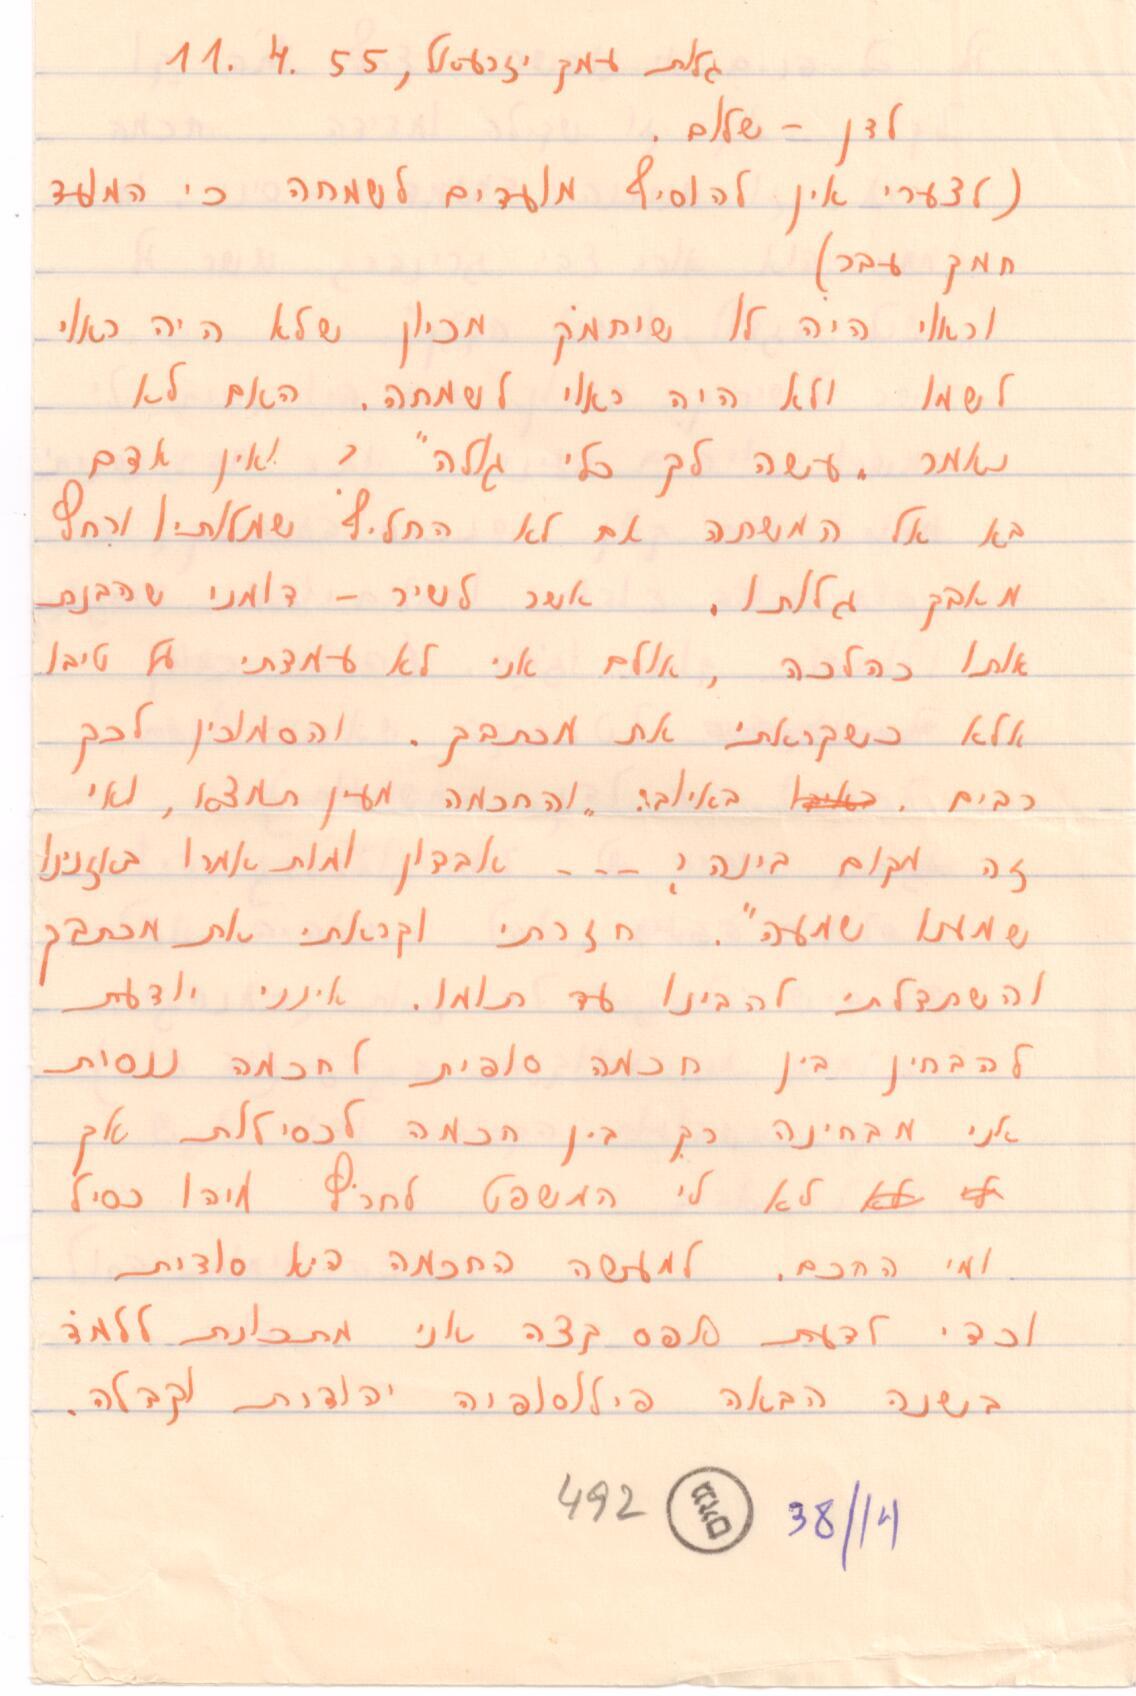 גלות עמק יזרעאל, 11.4.55
לדן – שלום.
(לצערי אין להוסיף מועדים לשמחה כי המועד
חמק עבר)
וראוי היה לו שיחמק מכיון שלא היה ראוי
לשמו ולא היה ראוי לשמחה. האם לא
נאמר "עשה לך כלי גולה"? ואין אדם
בא אל המשתה אם לא החליף שמלותיו ורחץ
מאבק גלותו. אשר לשיר – דומני שהבנת
אותו כהלכה, אולם אני לא עמדתי על טיבו
אלא כשקראתי את מכתבך. והסמוכין לכך
רבים. באיוב: "והחכמה מאין תמצא, ואי
זה מקום בינה? --- אבדון ומות אמרו באזנינו
שמענו שמעה". חזרתי וקראתי את מכתבך
והשתדלתי להבינו עד תומו. אינני יודעת
להבחין בין חכמה סופית לחכמה
אני מבחינה רק בין חכמה לכסילות אך
לא לי המשפט לחרוץ מיהו כסיל
ומי החכם. למעשה החכמה היא סודית
וכדי לדעת אפס קצה אני מתכוונת ללמוד
בשנה הבאה פילוסופיה יהודית וקבלה.
492 38/14